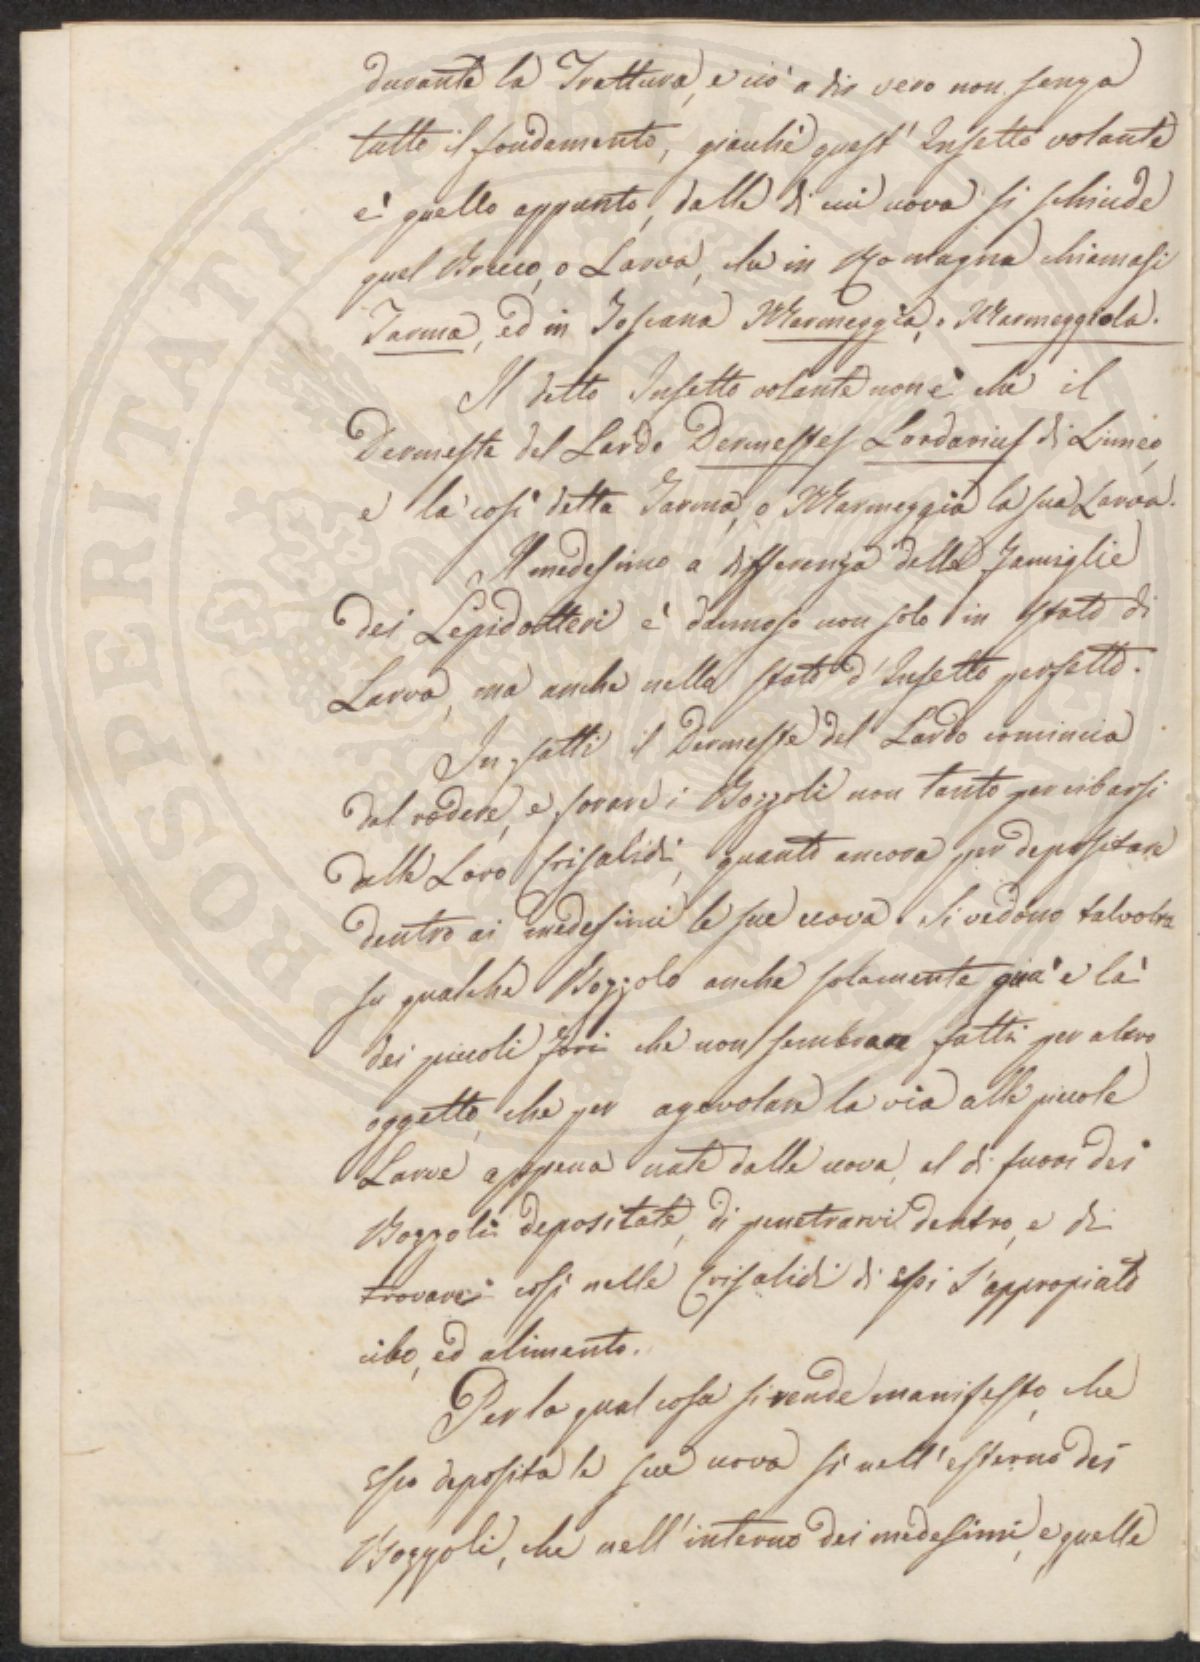 durante la Trattura, e ciò a dir vero non senza
tutto il fondamento, giacchè quest' Insetto volante
è quello appunto, dalle di cui uova si schiude
quel Bruco, o Larva, che in Romagna chiamasi
Tarma, ed in Toscana Marmeggia, o Marmeggiola.
Il detto Insetto volante non è che il
Dermeste del Lardo Dermestes Lardarius di Linneo,
e la così detta Tarma, o Marmeggia la sua Larva.
Il medesimo a differenza delle Famiglie
dei Lepidotteri è dannoso non solo in stato di
Larva, ma anche nello stato d' Insetto perfetto.
In fatti il Dermeste del Lardo comincia
dal rodere, e forare i Bozzoli non tanto per cibarsi
delle Loro Crisalidi, quanto ancora per depositare
dentro ai medesimi le sue uova. Si vedono talvolta
su qualche Bozzolo anche solamente quà e là
dei piccoli fori che non sembrano fatti per altro
oggetto, che per agevolare la via alle piccole
Larve appena nate dalle uova, al di fuori dei
Bozzoli depositate, di penetrarvi dentro, e di
trovarci così nelle Crisalidi di essi l'appropiato
cibo, ed alimento.
Per la qual cosa si rende manifesto, che
esso deposita le sue uova sì nell' esterno dei
Bozzoli, che nell' interno dei medesimi, e quelle
PROSPERITATI PUBLICAE